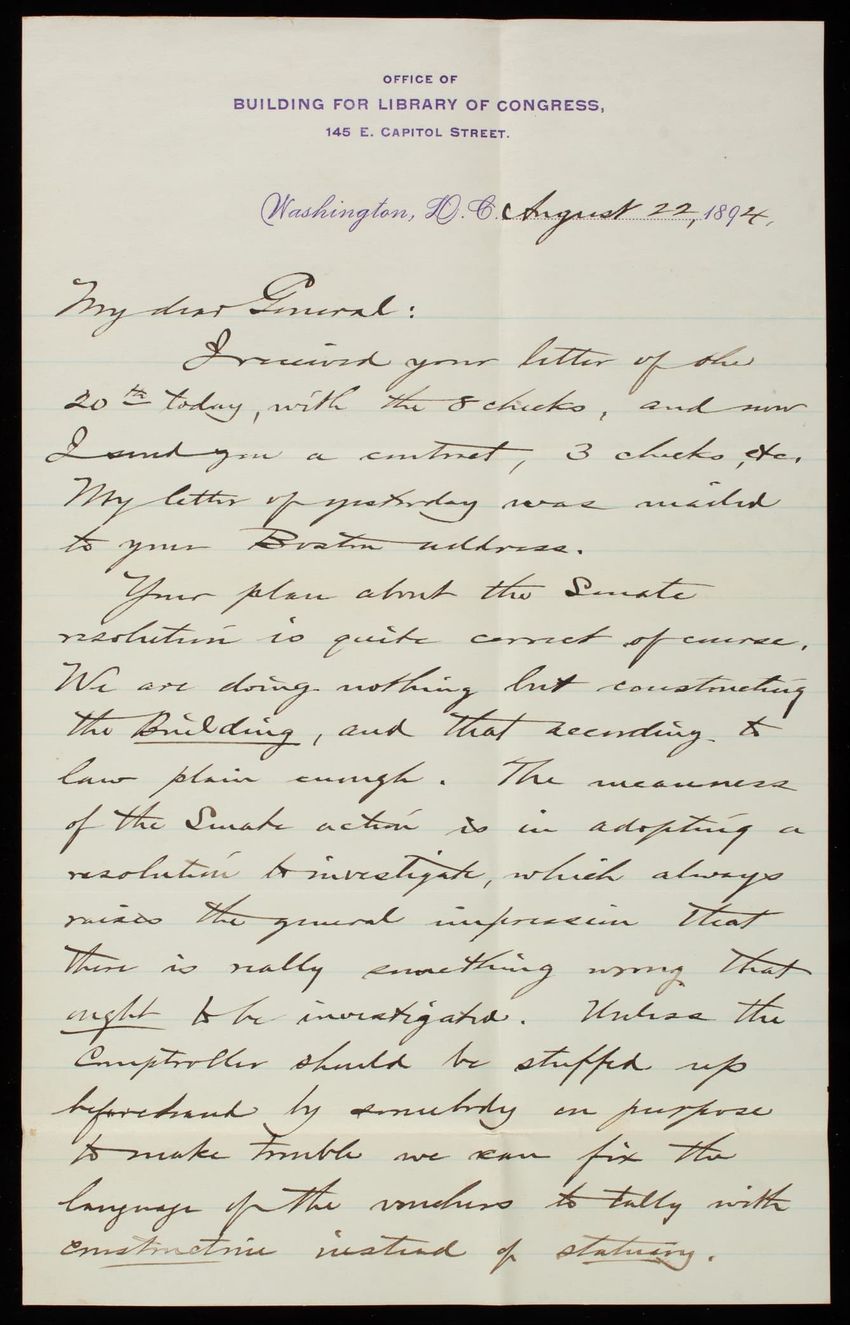 OFFICE OF
BUILDING FOR LIBRARY OF CONGRESS,
145 E. CAPITOL STREET.
Washington, D.C. August 22, 1894.
My dear General:
I received your letter of the
20th today, with the 8 checks, and now
I send you a contract, 3 checks, &c.
My letter of yesterday was mailed
to your Boston address.
Your plan about the Senate
resolution is quite correct of course.
We are doing nothing but constructing
the Building, and that according to
law plain enough. The meanness
of the Senate action is in adopting a
resolution to investigate, which always
raises the general impression that
there is really something wrong that
ought to be investigated. Unless the
Comptroller should be stuffed up
beforehand by somebody on purpose
to make trouble we can fix the
language of the vouchers to tally with
construction instead of statuary.